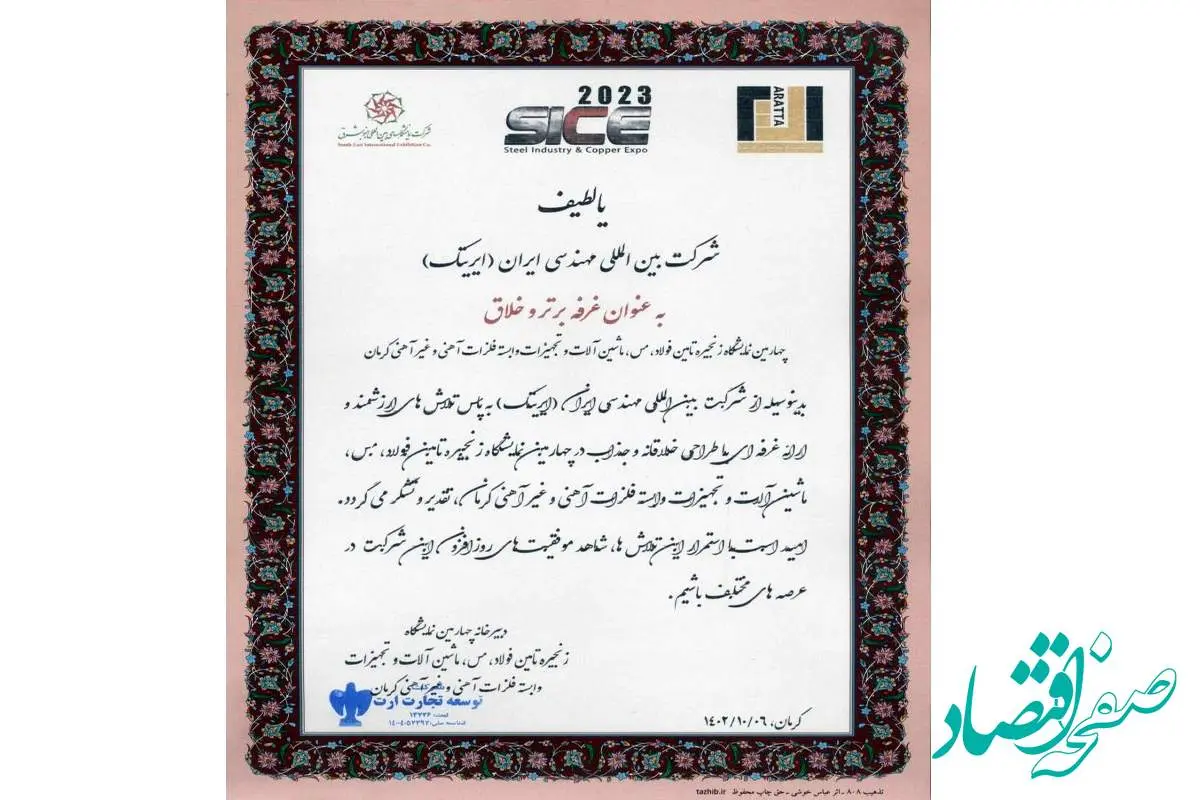 2023
SICE
Steel Industry & Copper Expo
ARATTA
شرکت نمایشگاههای بین المللی جنوبشرق
South East International Exhibition Co.
یا لطیف
شرکت بین المللی مهندسی ایران (ایریتک)
به عنوان غرفه برتر و خلاق
چهارمین نمایشگاه زنجیره تامین فولاد، مس، ماشین آلات و تجهیزات وابسته فلزات آهنی و غیر آهنی کرمان
بدینوسیله از شرکت بین المللی مهندسی ایران (ایریتک) به پاس تلاش های ارزشمند و
ارائه غرفه ای با طراحی خلاقانه و جذاب در چهارمین نمایشگاه زنجیره تامین فولاد، مس،
ماشین آلات و تجهیزات وابسته فلزات آهنی و غیر آهنی کرمان، تقدیر و تشکر می گردد.
امید است با استمرار این تلاش ها، شاهد موفقیت های روز افزون این شرکت در
عرصه های مختلف باشیم.
دبیرخانه چهارمین نمایشگاه
زنجیره تامین فولاد، مس، ماشین آلات و تجهیزات
وابسته فلزات آهنی و غیر آهنی کرمان
توسعه تجارت ارت
ثبت: ۱۳۲۳۶
شناسه ملی: ۱۴۰۰۴۰۵۲۳۹۲
کرمان، ۱۴۰۲/۱۰/۰۶
تذهیب ۸۰۸ ـ اثر عباس خوشی ـ حق چاپ محفوظ tazhib.ir
صفحه اقتصاد